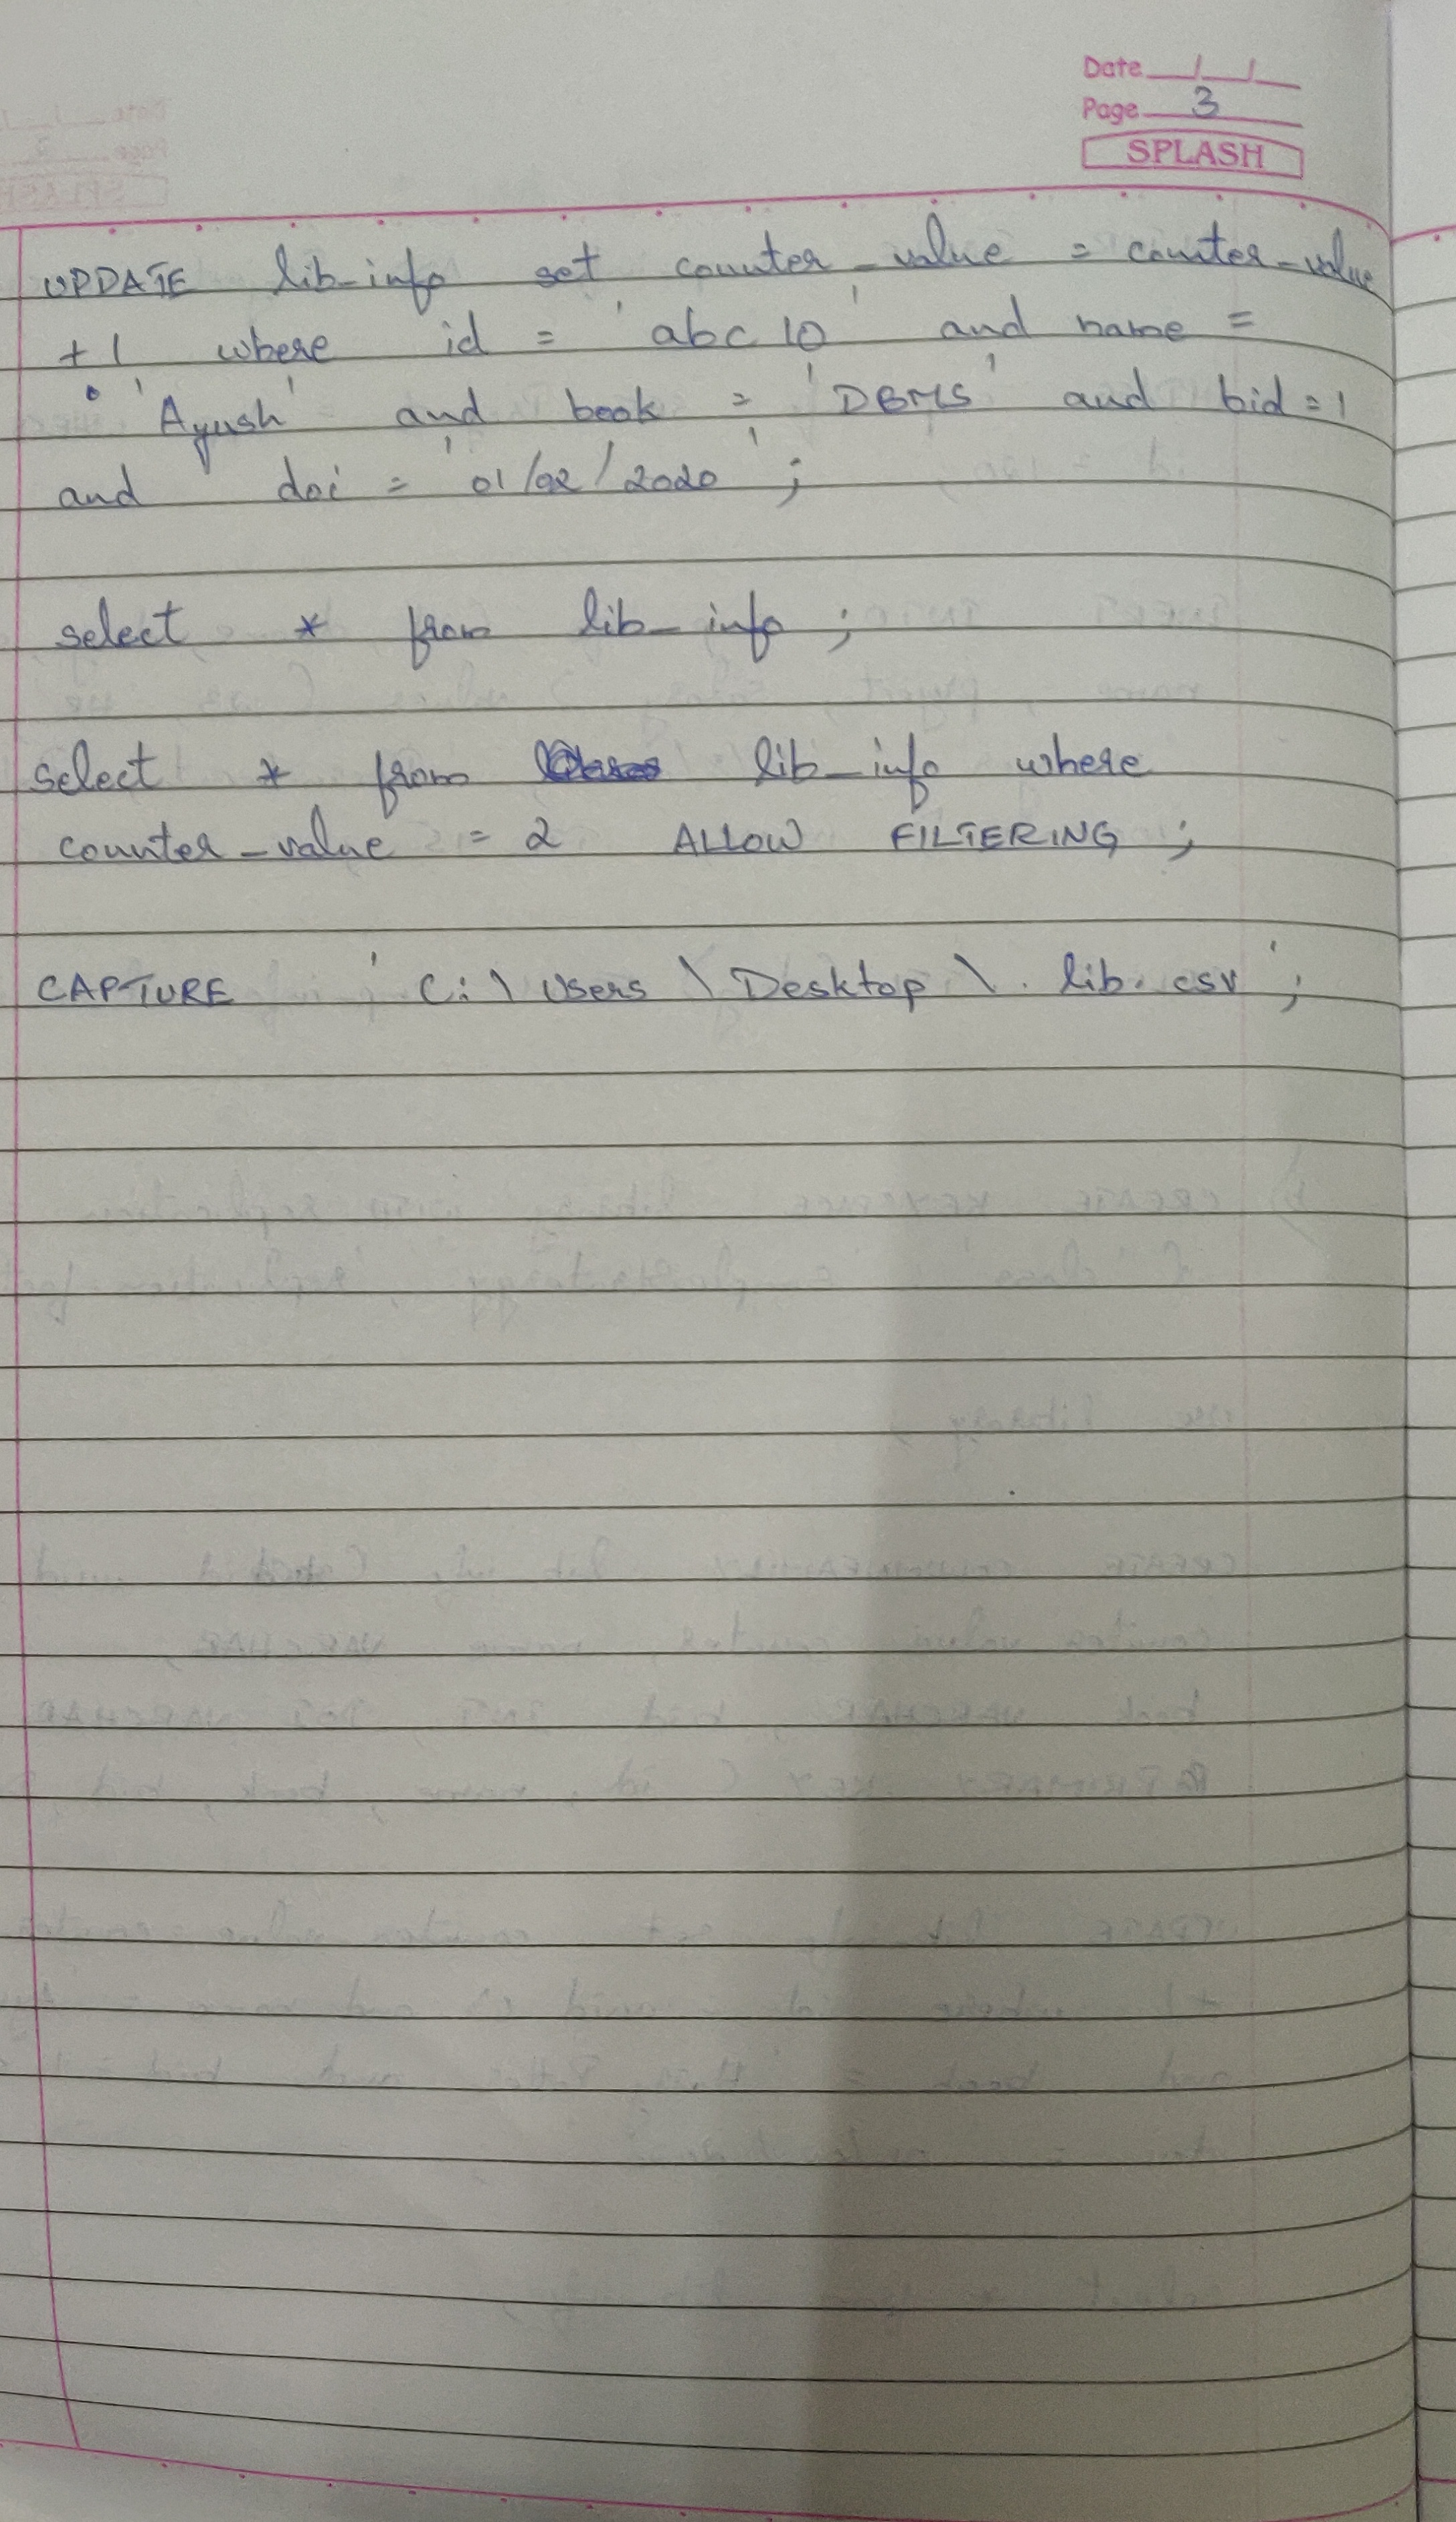 Date
Page 3
SPLASH
UPDATE lib_info set counter_value = counter_value
+1 where id = 'abc10' and name =
'Ayush' and book = 'DBMS' and bid = 1
and doi = '01/02/2020' ;
select * from lib_info ;
select * from lib_info where
counter_value = 2 ALLOW FILTERING ;
CAPTURE 'C:\Users\Desktop\.lib.csv' ;